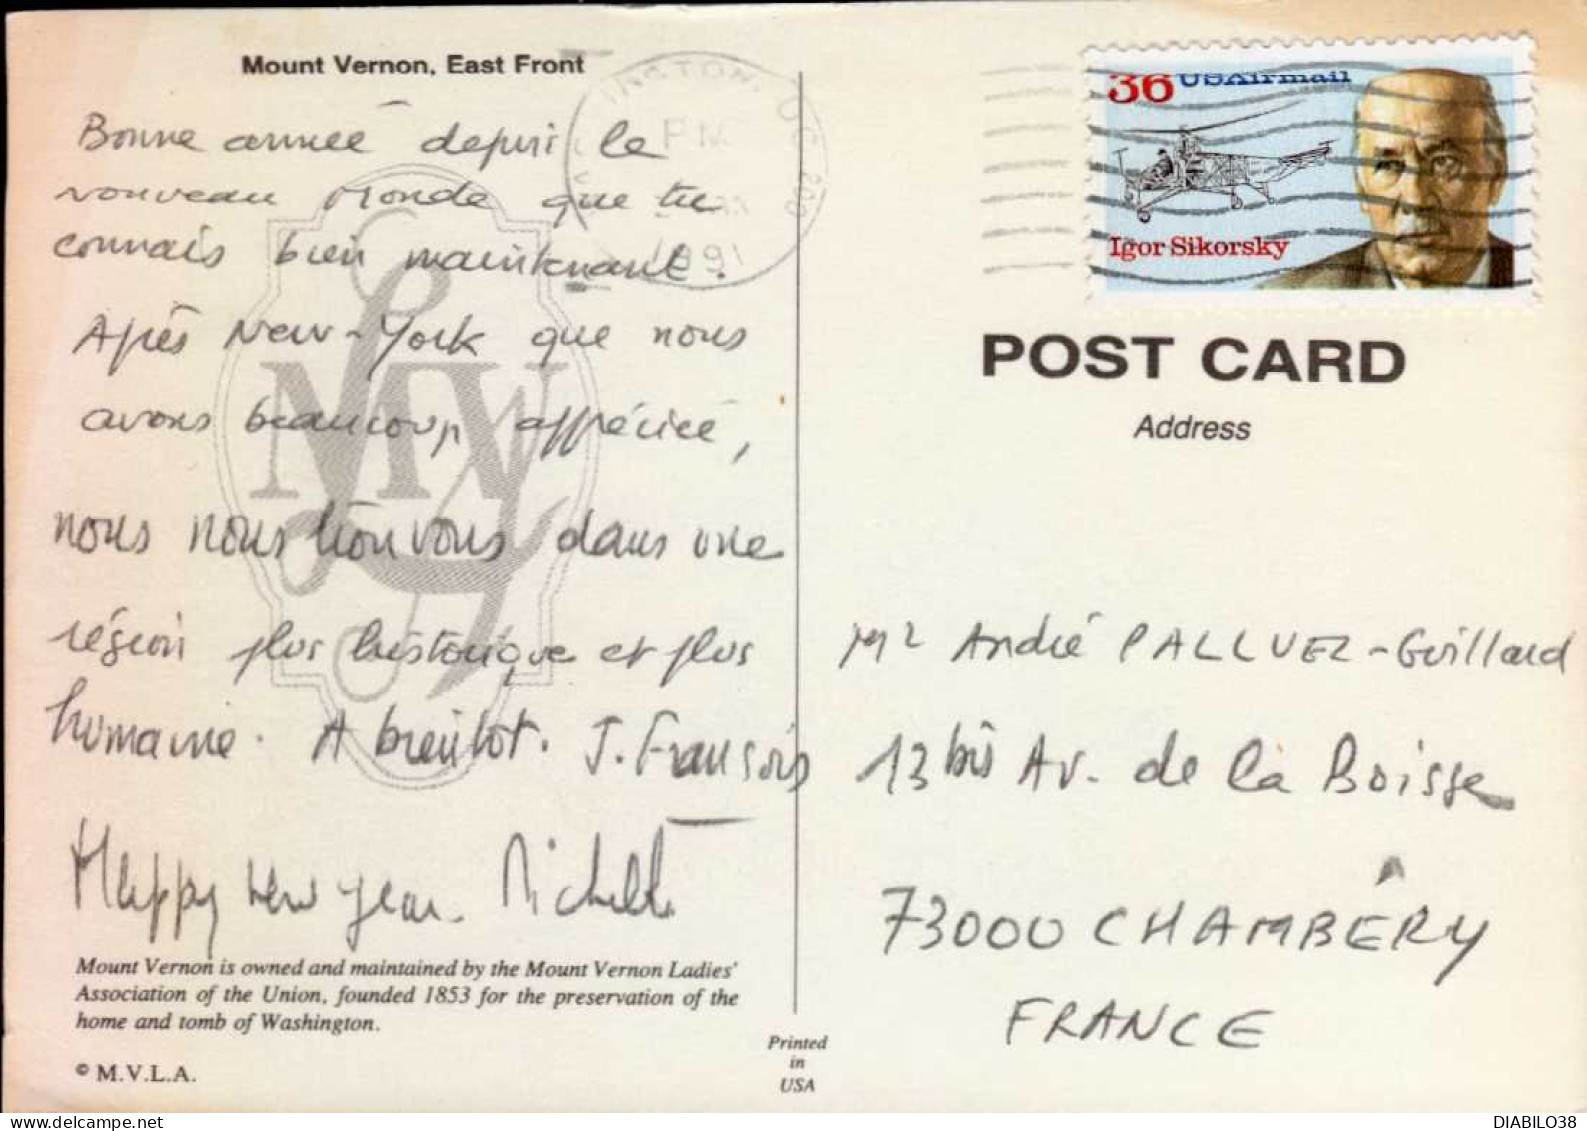 Mount Vernon, East Front
Bonne année depuis le
nouveau Monde que tu
connais bien maintenant.
Après New-York que nous
avons beaucoup apprécié,
nous nous trouvons dans une
région plus historique et plus
humaine. A bientôt. J. François
Happy New year. Michelle
Mount Vernon is owned and maintained by the Mount Vernon Ladies'
Association of the Union, founded 1853 for the preservation of the
home and tomb of Washington.
© M.V.L.A.
Printed
in
USA
INGTON, DC 200
PM
1991
36 USAirmail
Igor Sikorsky
POST CARD
Address
Mr André PALLUEL-Guillard
13 bis Av. de la Boisse
73000 CHAMBÊRY
FRANCE
MV
DIABILO38